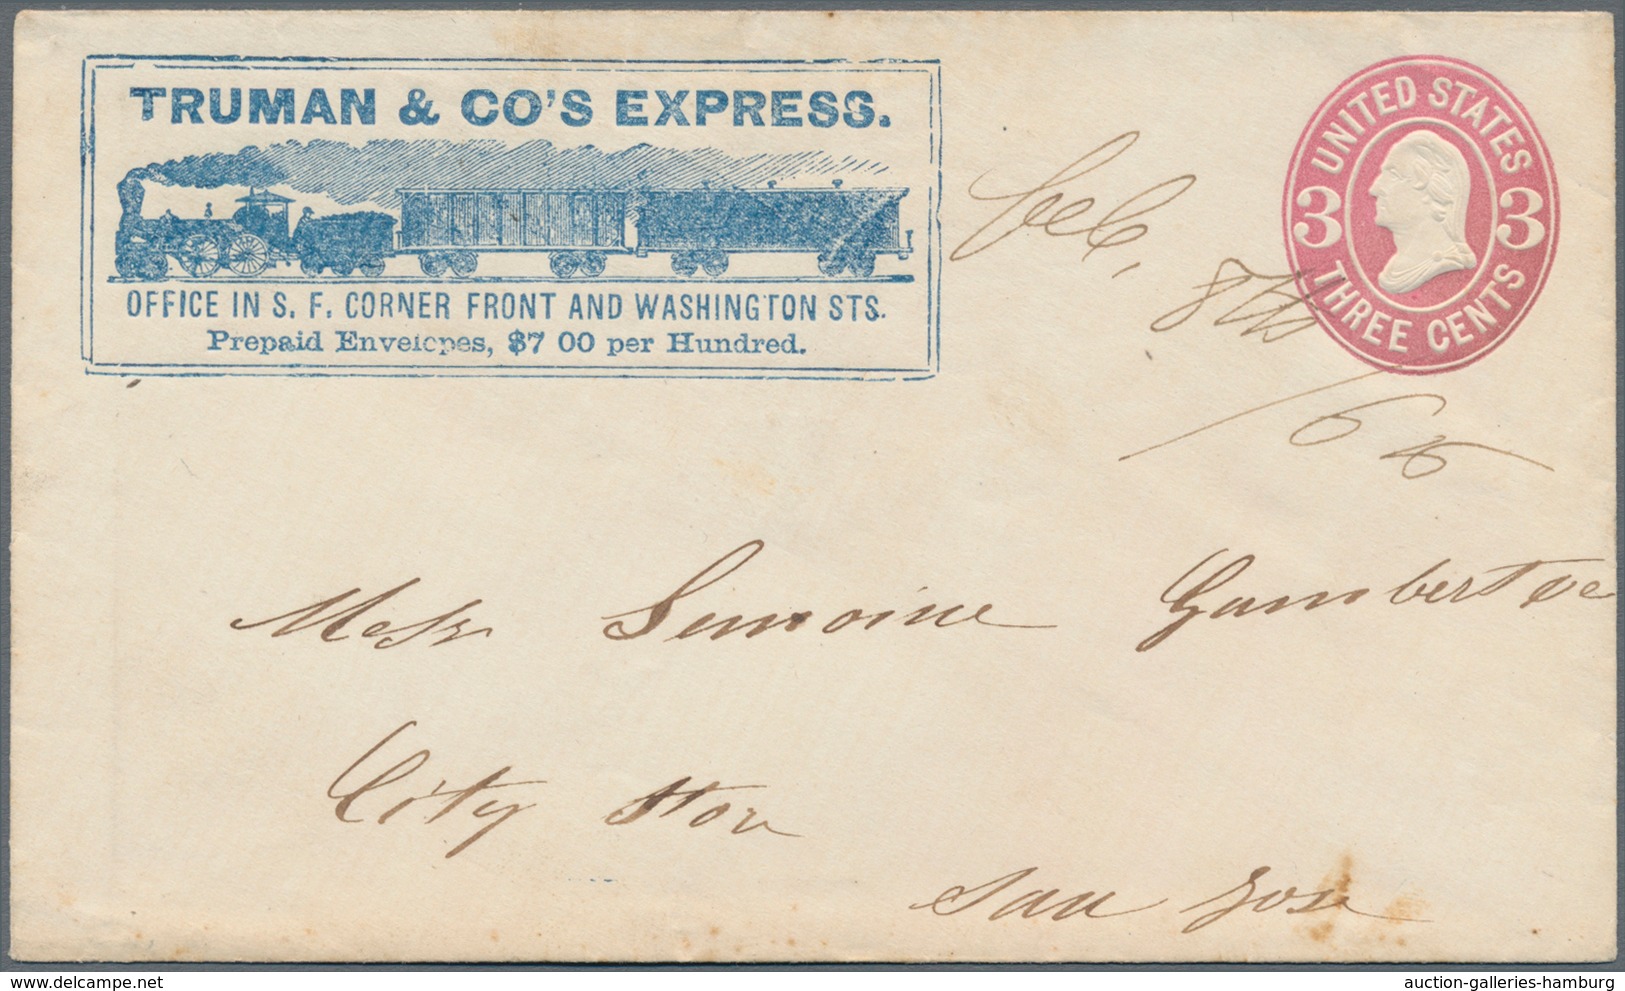 TRUMAN & CO'S EXPRESS.
OFFICE IN S. F. CORNER FRONT AND WASHINGTON STS.
Prepaid Envelopes, $7 00 per Hundred.
UNITED STATES
3 3
THREE CENTS
Feb,
8th
/66
Messr Lemoine Gambert &c
City Stor
San Jose
auction-galleries-hamburg